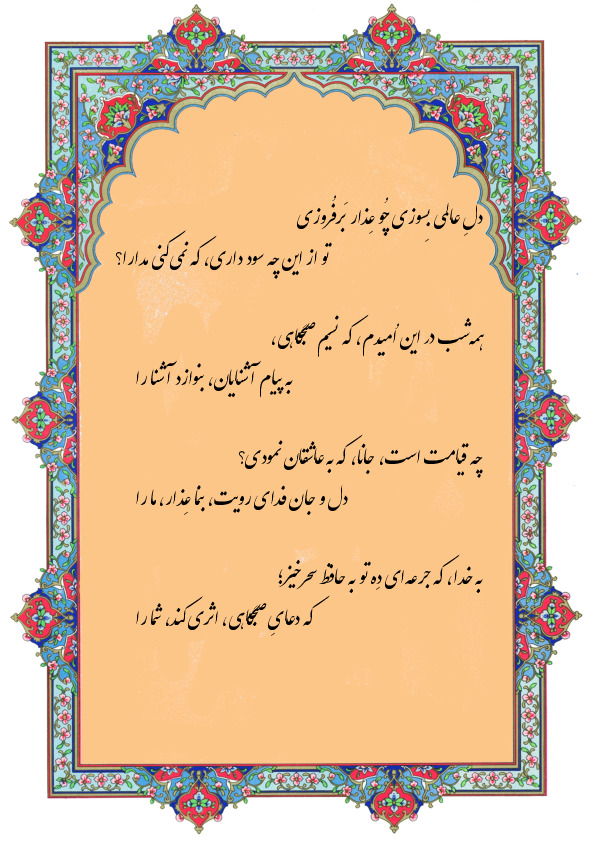 دلِ عالمی بِسوزی چُو عِذار بَرفُروزی
تو از این چه سود داری، که نمی‌کنی مدارا؟
همه‌شب در این اُمیدم، که نسیم صبحگاهی،
به پیام آشنایان، بنوازد آشنا را
چه قیامت است، جانا، که به عاشقان نمودی؟
دل و جان فدای رویت، بنما عِذار، ما را
به خدا، که جرعه‌ای دِه تو به حافظ سحرخیز؛
که دعایِ صبحگاهی، اثری کند، شما را